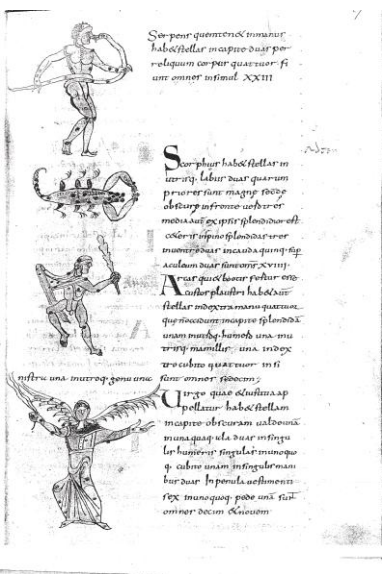 Serpens quem tenet in manus
habet stellas in capite duas per
reliquum corpus quattuor fi
unt omnes insimul XXIII
Scorpius habet stellas in
utrisq. labiis duas quarum
priores sunt magne sed
obscure in fronte
media aut ex ipsis splendidior est
splendidas tres
in ventre duas in cauda quinq.
aculeum duas XVIIII
Arcas qui et bootes
custos plaustri habet aut
stellas in dextra manu quattuor
que non occidunt in capite splendidā
unam in utrisq. humeris una in u
trisq. mamillis una in dex
tro cubito quattuor in si
nistro una in utroq. genu unā sunt omnes sedecim
Virgo quae et iustitia ap
pellatur habet stellam
in capite obscuram valde unā
in unaquaq. ala duas in singu
lis humeris singulas in unoquo
q. cubito unam in singulis mani
bus duas In penula vestimenti
sex in unoquoq. pede unā sunt
omnes decim et novem